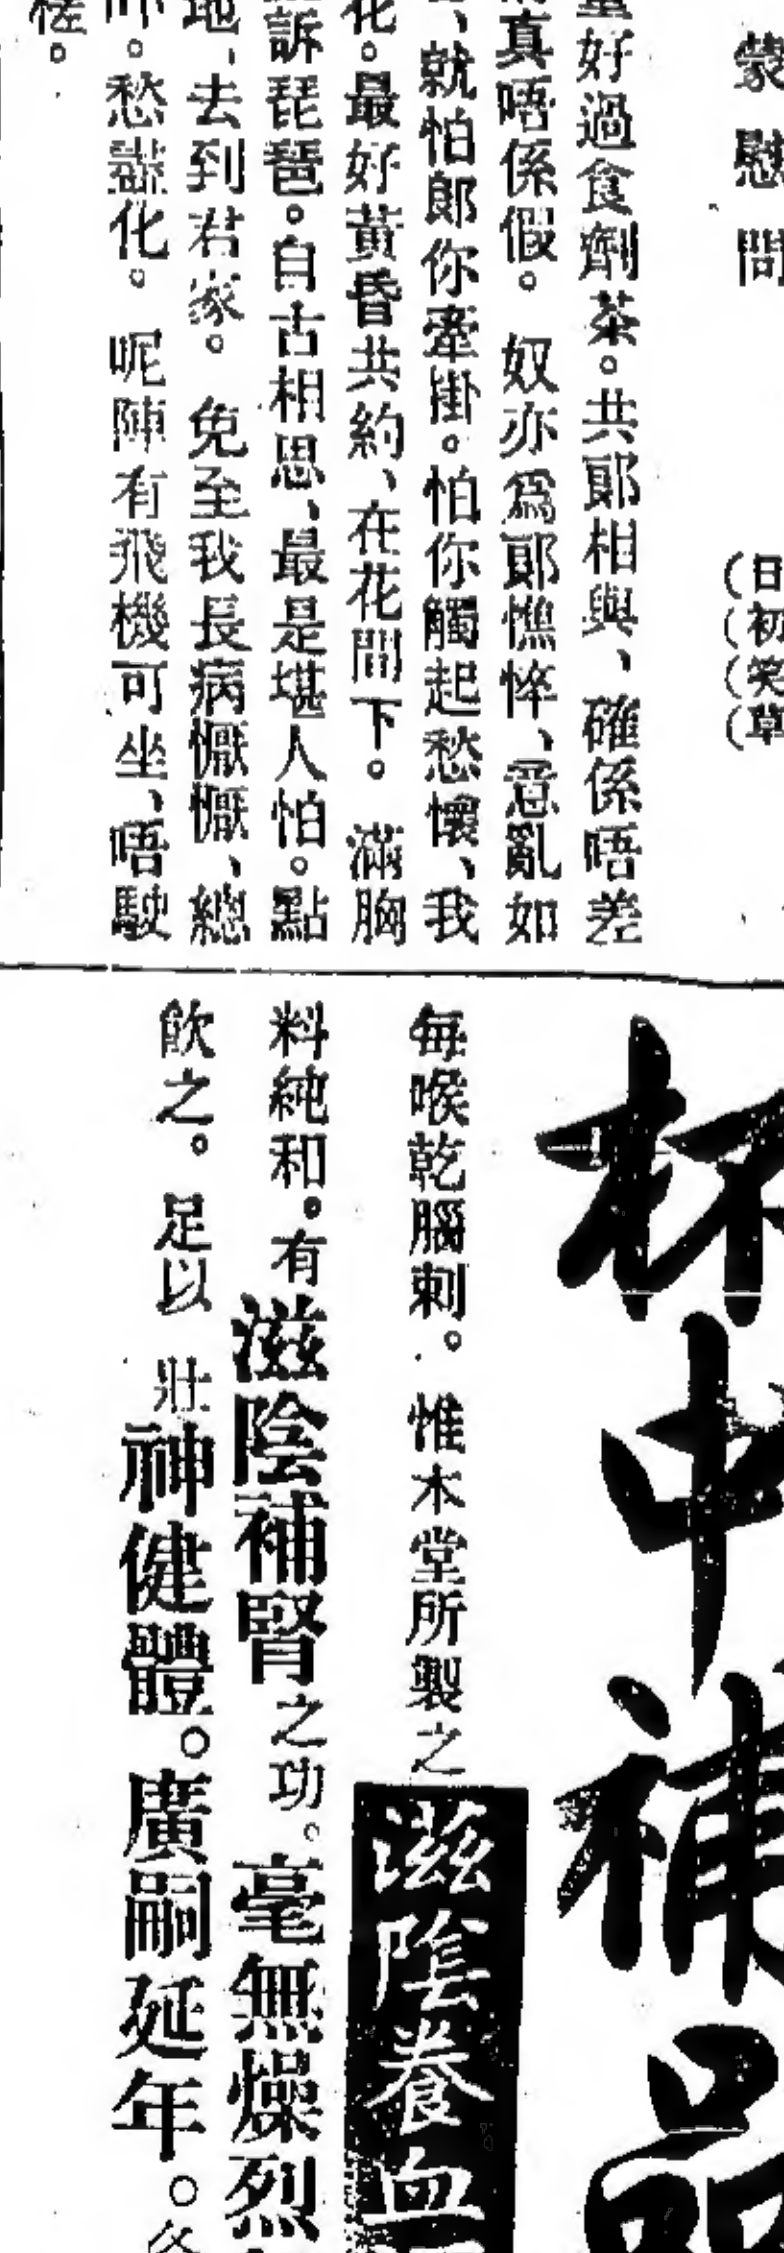 蒙慰問
(日
(初
(笑
(草
好過食劑茶。共郎相與、確係唔差
真唔係假。奴亦為郎憔悴、意亂如
、就怕郎你牽掛。怕你觸起愁懷、我
花。最好黃昏共約、在花間下。滿胸
訴琵琶。自古相思、最是堪人怕。點
地、去到君家。免至我長病懨懨、總
吓。愁盡化。呢陣有飛機可坐、唔駛
槎。
杯中補品
每喉乾腦刺。惟木堂所製之滋陰養血
料純和。有滋陰補腎之功。毫無燥烈
飲之。足以壯神健體。廣嗣延年。各